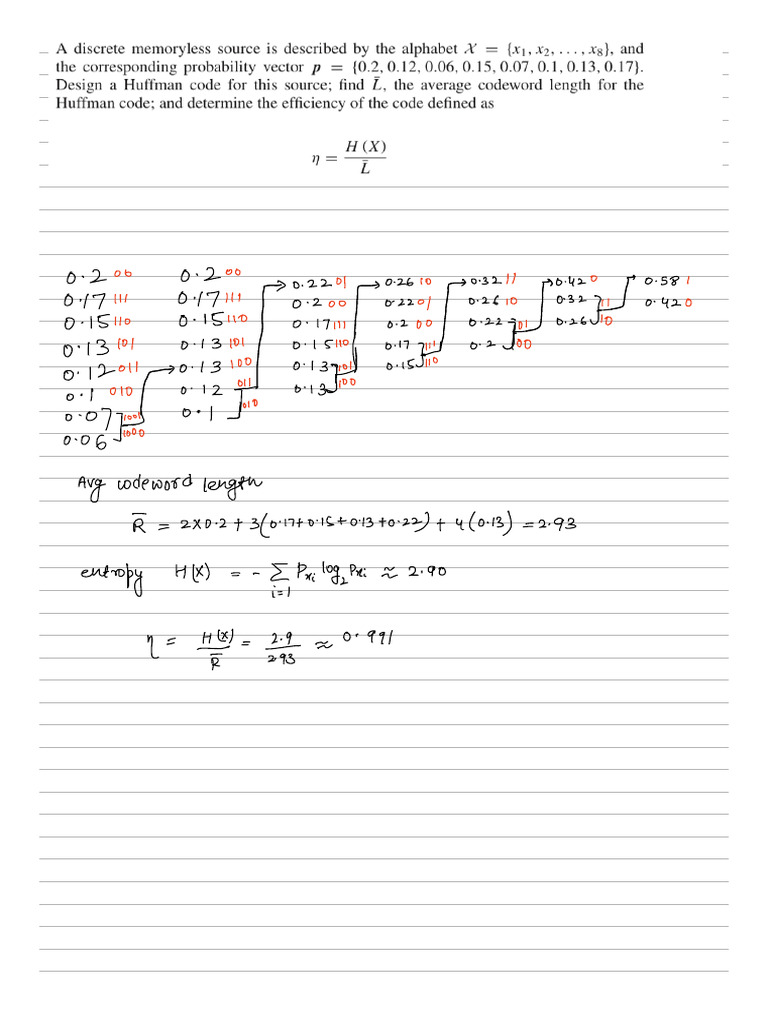 A discrete memoryless source is described by the alphabet 𝒳 = {x₁, x₂, . . . , x₈}, and
the corresponding probability vector p = {0.2, 0.12, 0.06, 0.15, 0.07, 0.1, 0.13, 0.17}.
Design a Huffman code for this source; find L̄, the average codeword length for the
Huffman code; and determine the efficiency of the code defined as
η = H (X) / L̄
0.2 00 0.2 00 0.22 01 0.26 10 0.32 11 0.42 0 0.58 1
0.17 111 0.17 111 0.2 00 0.22 01 0.26 10 0.32 11 0.42 0
0.15 110 0.15 110 0.17 111 0.2 00 0.22 01 0.26 10
0.13 101 0.13 101 0.15 110 0.17 111 0.2 00
0.12 011 0.13 100 0.13 101 0.15 110
0.1 010 0.12 011 0.13 100
0.07 1001 0.1 010
0.06 1000
Avg codeword length
R̄ = 2×0.2 + 3(0.17+0.15+0.13+0.22) + 4(0.13) = 2.93
entropy H(X) = - Σ i=1 Pxi log₂ Pxi ≈ 2.90
η = H(x) / R̄ = 2.9 / 293 ≈ 0.991